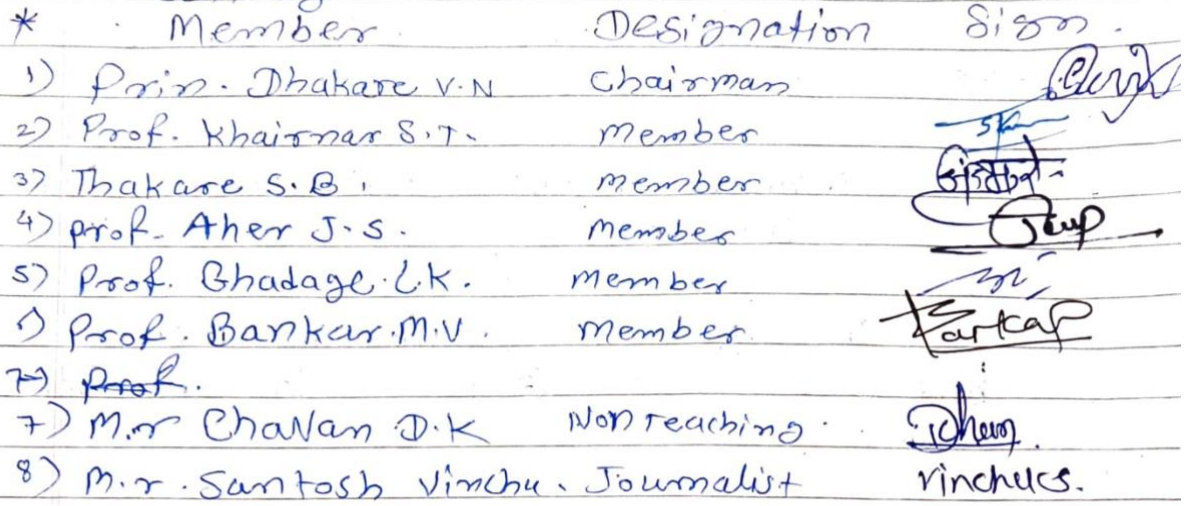 * Member Designation Sign.
1) Prin. Dhakare V.N Chairman
2) Prof. Khairnar S.T. member
3) Thakare S.B. member
4) prof. Aher J.S. member
5) Prof. Ghadage L.K. member
Prof. Bankar M.V. member
7) Prof.
7) M.r Chavan D.K Non Teaching
8) M.r. Santosh Vinchu. Journalist vinchucs.